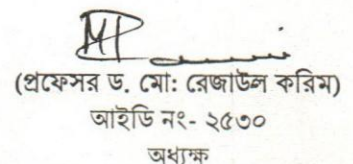 (প্রফেসর ড. মো: রেজাউল করিম)
আইডি নং- ২৫৩০
অধ্যক্ষ